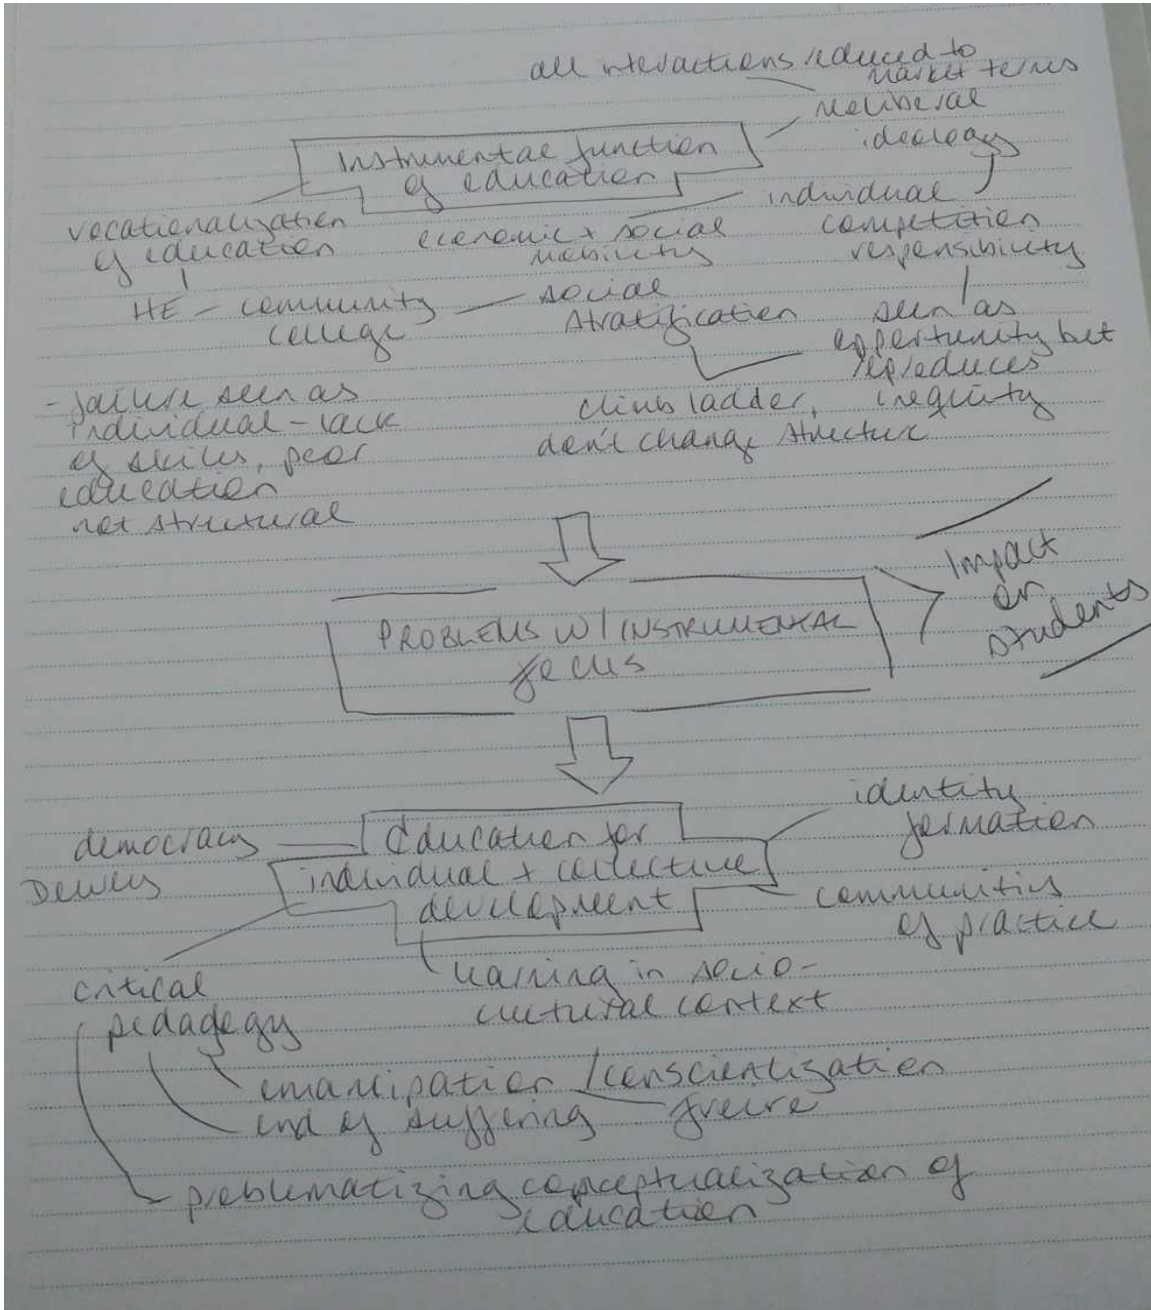 all interactions reduced to
market terms
neoliberal
ideology
Instrumental function
of education
vocationalization
of education
economic + social
mobility
individual
competition
responsibility
HE - community
college
social
stratification
seen as
opportunity but
reproduces
inequity
- failure seen as
individual - lack
of skills, poor
education
not structural
climb ladder,
don't change structure
PROBLEMS W/ INSTRUMENTAL
focus
Impact
on
students
democracy
Dewey
Education for
individual + collective
development
identity
formation
communities
of practice
learning in socio-
cultural context
critical
pedagogy
emancipation / conscientization
end of suffering freire
problematizing conceptualization of
education